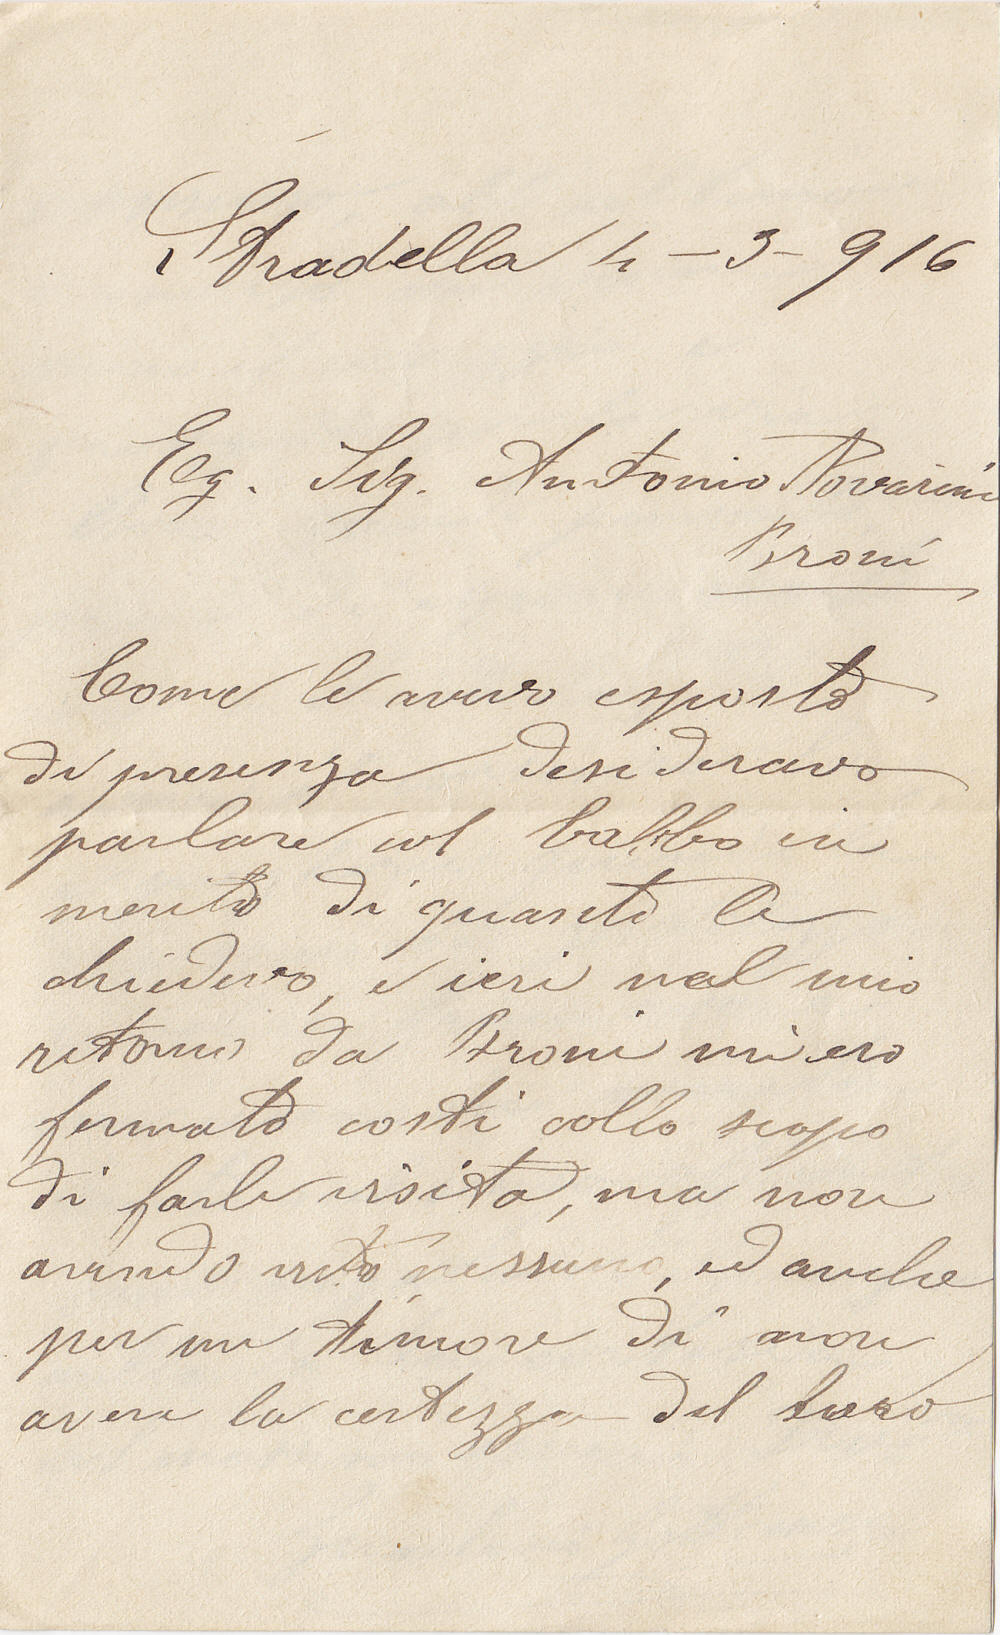 Stradella 4-3-916
Eg. Sig. Antonio Novarini
Broni
Come le avevo esposto
di presenza desideravo
parlare col babbo in
merito di quanto le
chiedevo, e ieri nel mio
ritorno da Broni mi ero
fermato costì collo scopo
di farle visita, ma non
avendo visto nessuno, ed anche
per un timore di non
avere la certezza del loro